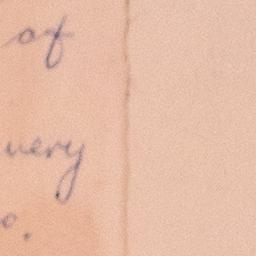 of
very